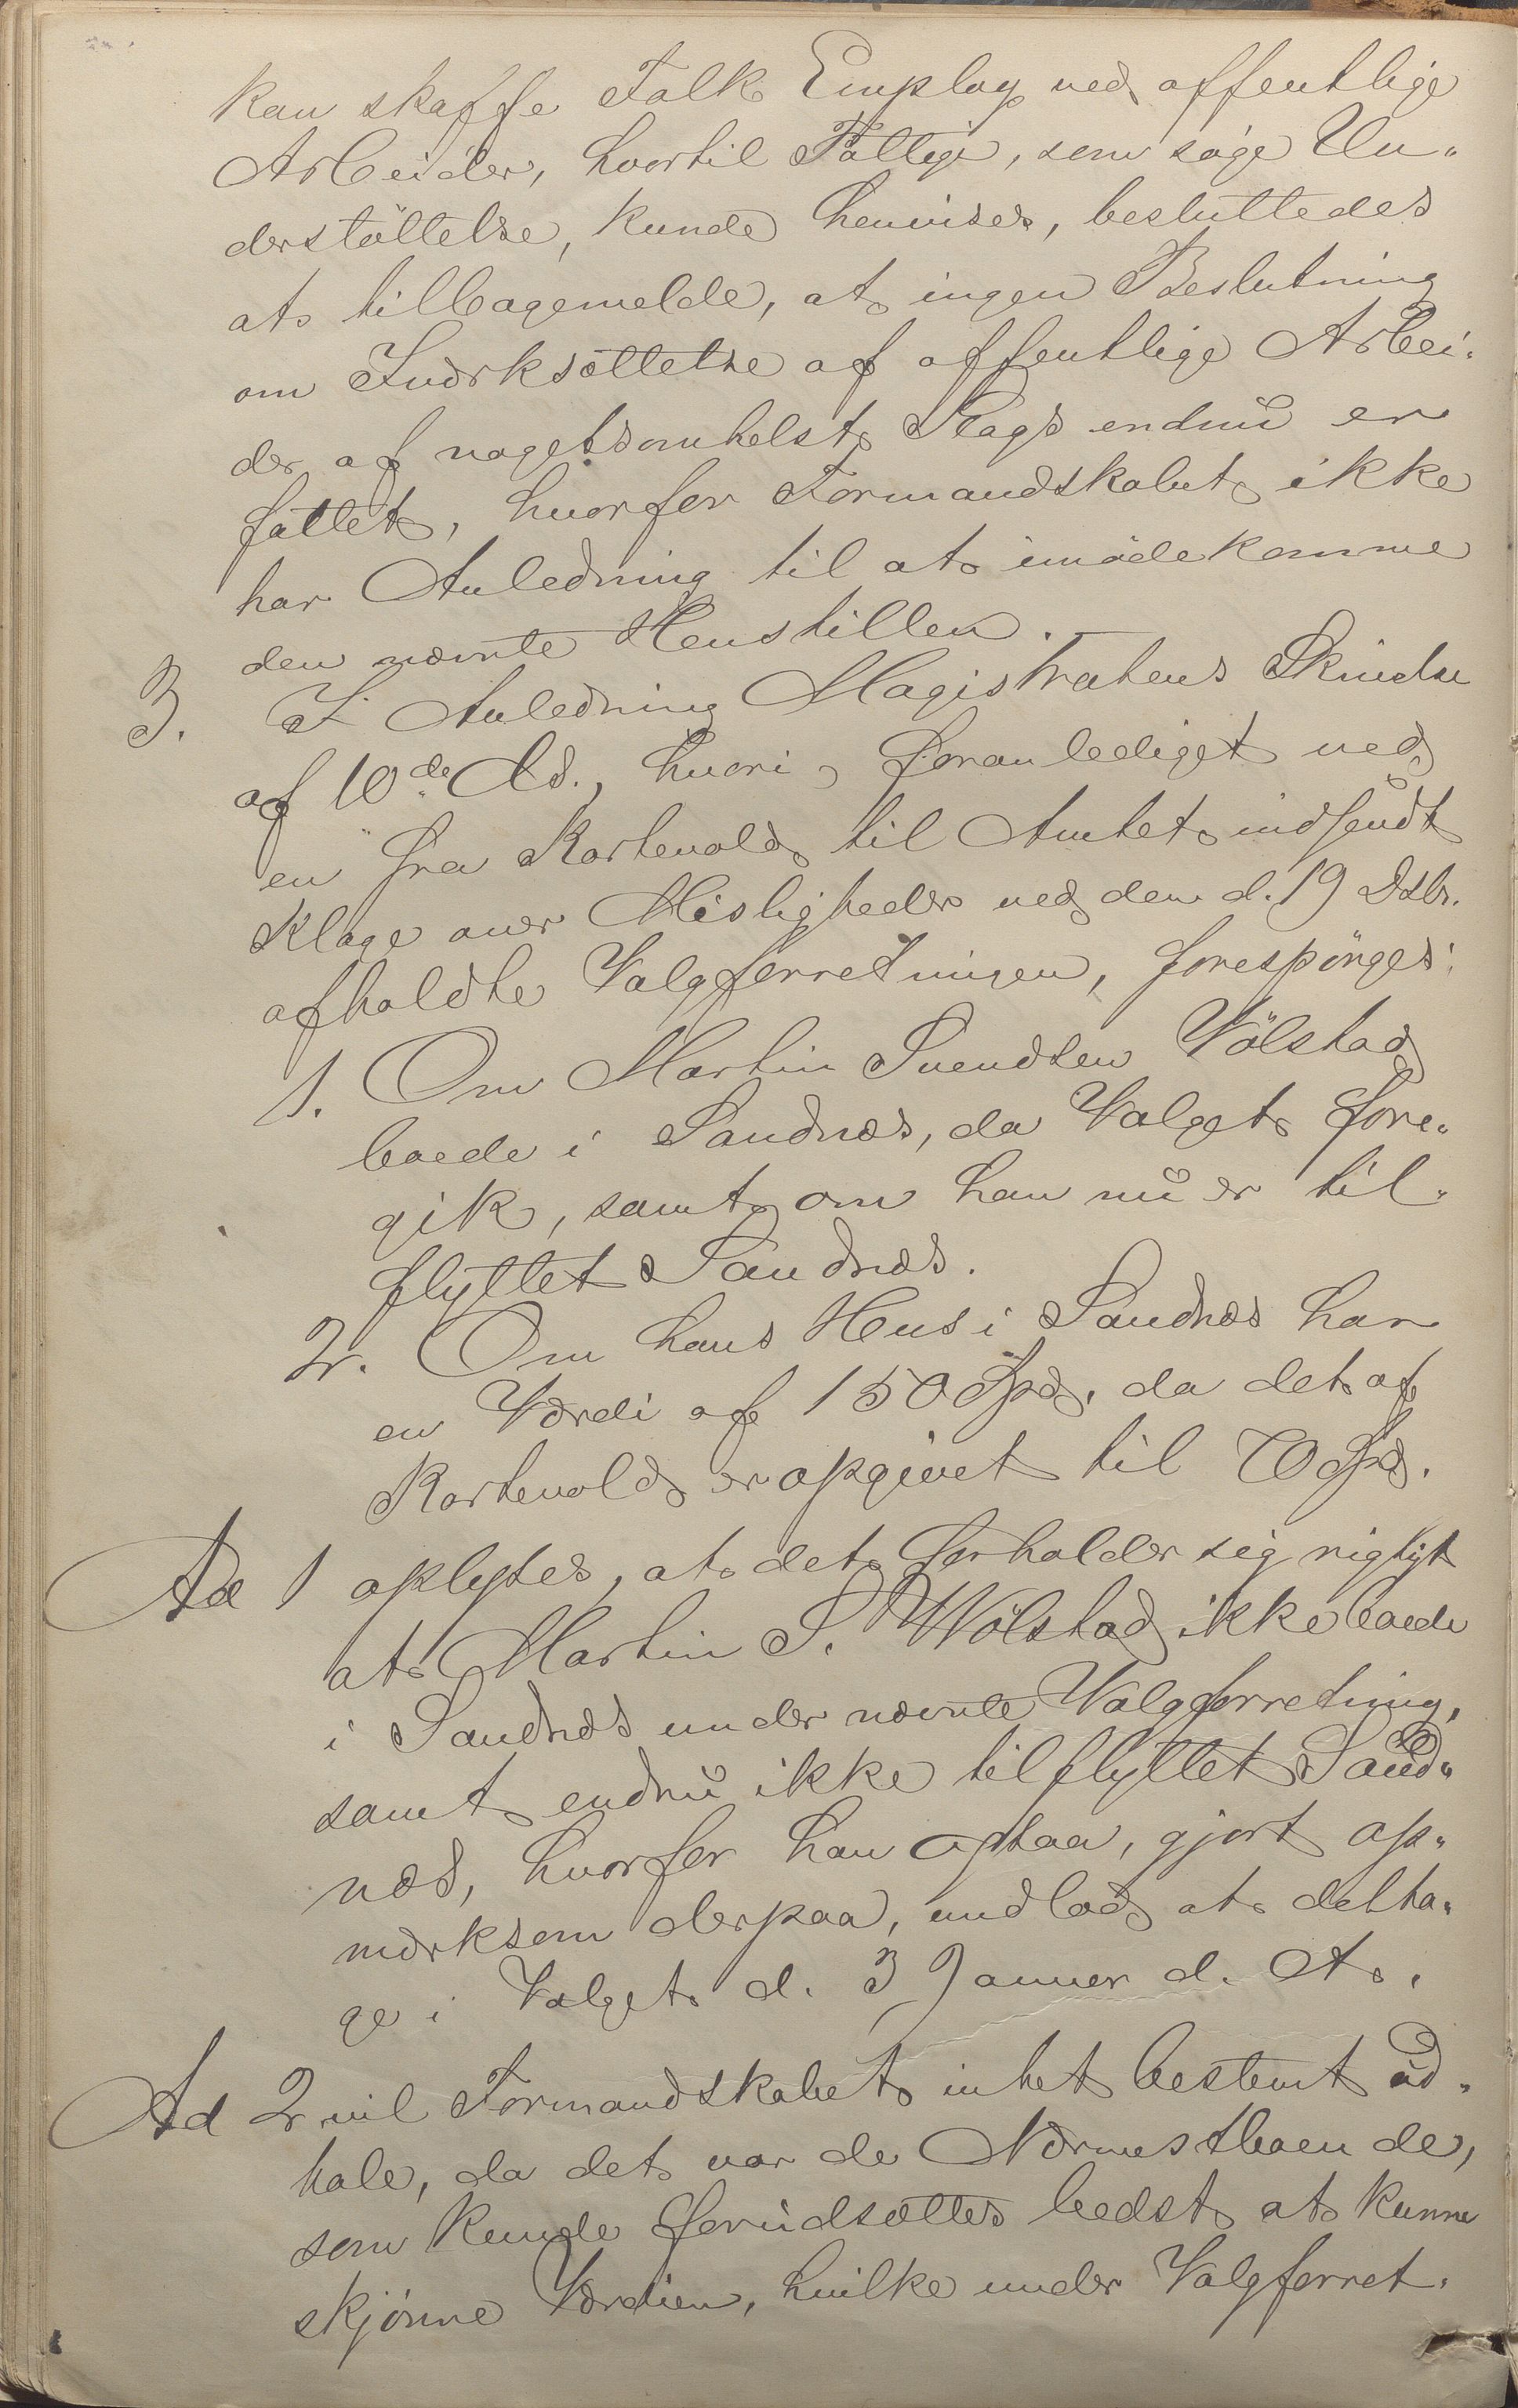 kan skaffe Folk Employ ved offentlige
Arbeider, hvortil Fattige, som søge Un-
derstöttelse, kunde henvises, besluttedes
at tilbagemelde, at ingen Beslutning
om Iværksættelse af offentlige Arbei-
der af nogetsomhelst Slags endnu er
fattet, hvorfor Formandskabet ikke
har Anledning til at imödekomme
den nævnte Henstillen.
3. I Anledning Magistratens Skrivelse
af 10de ds., hvori, foranlediget ved
en fra Kortevold til Amtet indsendt
Klage over Misligheder ved den d. 19 Dsbr.
afholdte Valgforretningen, forespörges:
1. Om Martin Svendsen Völstad
boede i Sandnæs, da Valget fore-
gik, samt om han nu er til-
flyttet Sandnæs.
2. Om hans Hus i Sandnæs har
en Værdi af 150 Spd, da det af
Kortevold er opgivet til 70 Spd.
Ad 1 oplyses, at det forholder sig rigtigt
at Martin S. Wölstad ikke boede
i Sandnæs under nævnte Valgforretning,
samt endnu ikke tilflyttet Sand-
næs, hvorfor han ogsaa, gjort op-
mærksom derpaa, undlod at delta-
ge i Valget d. 3 Januer d. A.
Ad 2 vil Formandskabet intet bestemt ud-
tale, da det var de Nærmestboende,
som kunde forudsættes bedst at kunne
skjönne Værdien, hvilke under Valgforret-